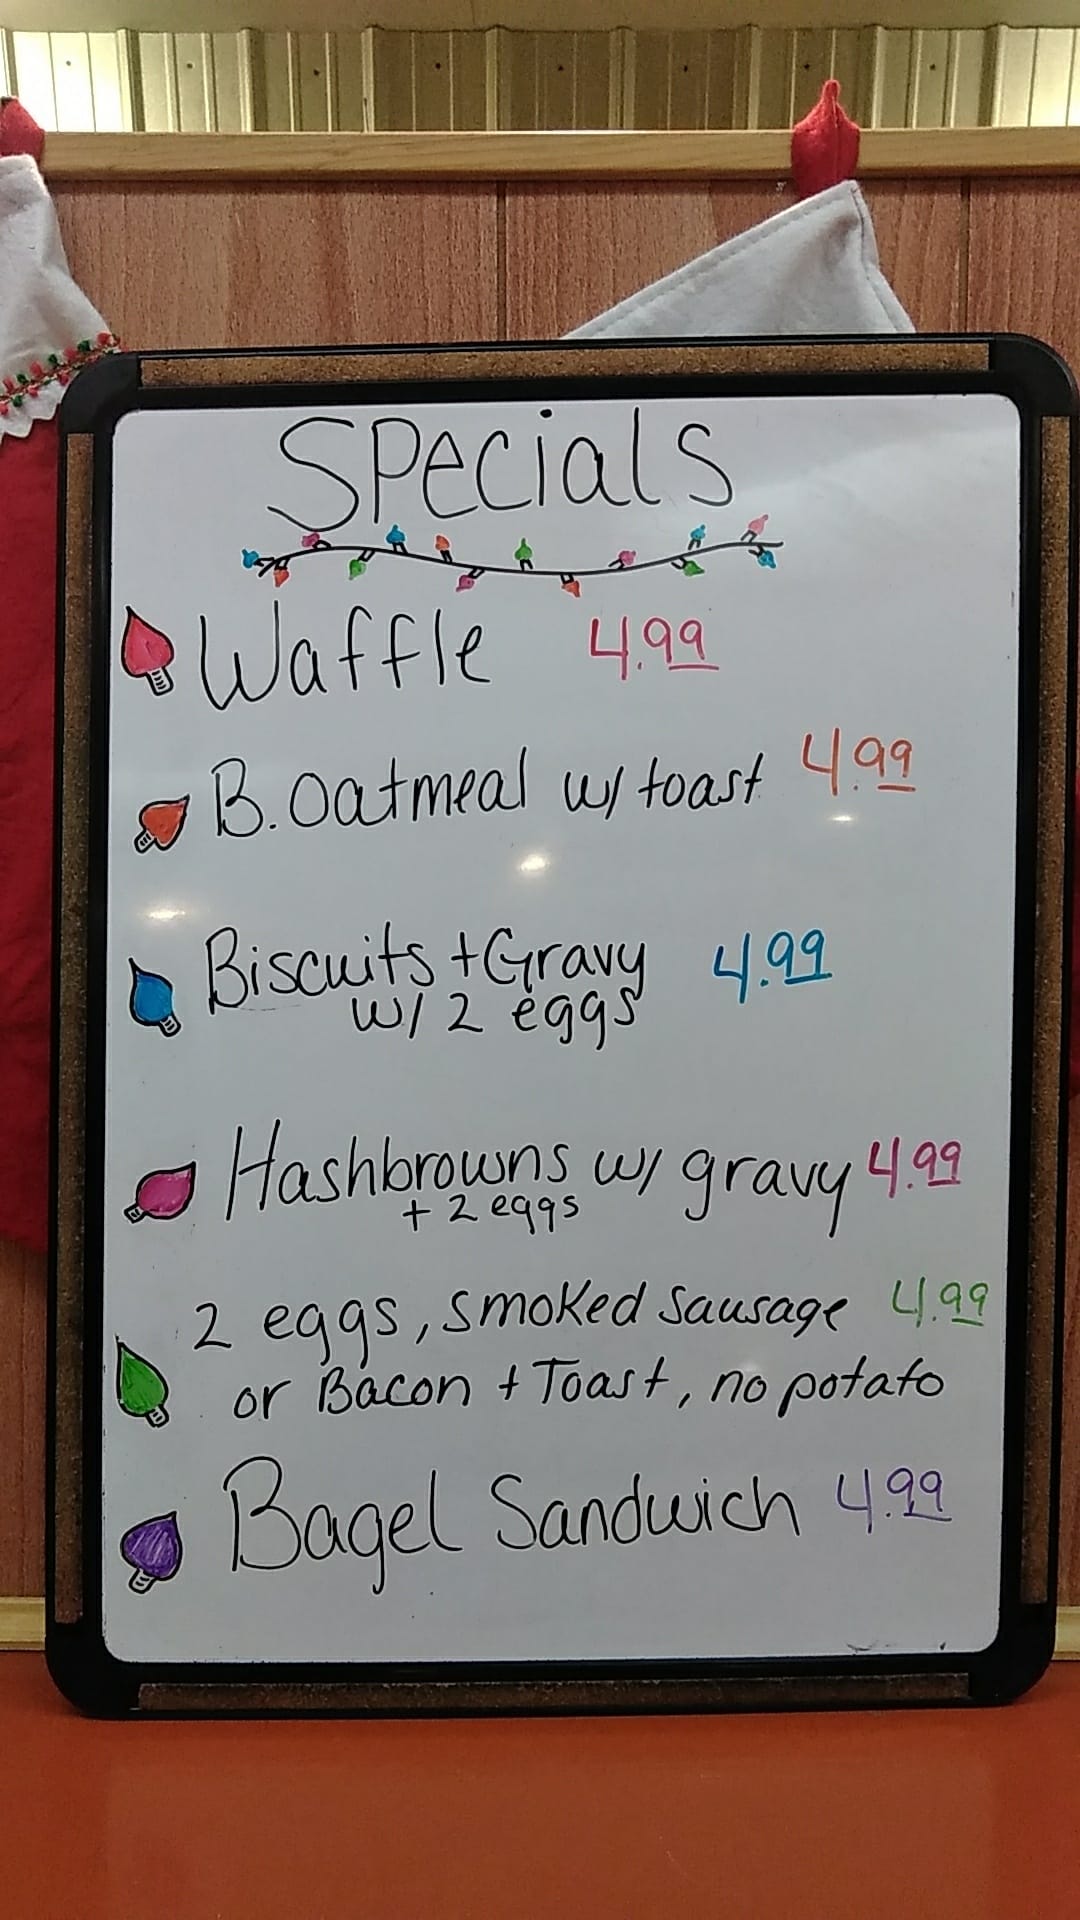 Specials
Waffle 4.99
B. Oatmeal w/ toast 4.99
Biscuits + Gravy 4.99
w/ 2 eggs
Hashbrowns w/ gravy 4.99
+ 2 eggs
2 eggs, smoked sausage 4.99
or Bacon + Toast, no potato
Bagel Sandwich 4.99